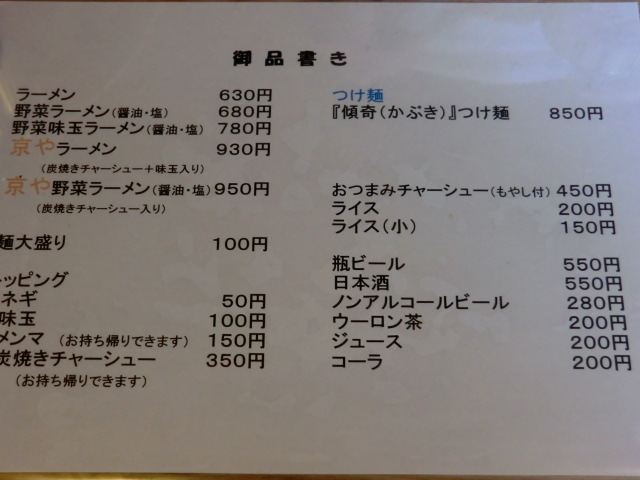 御品書き
ラーメン 630円
野菜ラーメン(醤油・塩) 680円
野菜味玉ラーメン(醤油・塩) 780円
京やラーメン 930円
(炭焼きチャーシュー+味玉入り)
京や野菜ラーメン(醤油・塩)950円
(炭焼きチャーシュー入り)
麺大盛り 100円
ッピング
ネギ 50円
味玉 100円
メンマ (お持ち帰りできます) 150円
炭焼きチャーシュー 350円
(お持ち帰りできます)
つけ麺
『傾奇(かぶき)』つけ麺 850円
おつまみチャーシュー(もやし付) 450円
ライス 200円
ライス(小) 150円
瓶ビール 550円
日本酒 550円
ノンアルコールビール 280円
ウーロン茶 200円
ジュース 200円
コーラ 200円